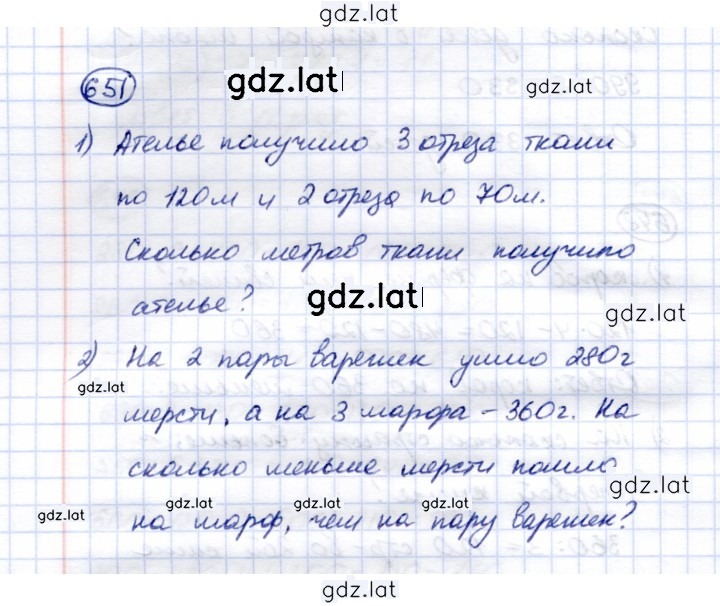 gdz.lat
651
gdz.lat
gdz.lat
1) Ателье получило 3 отреза ткани
по 120м и 2 отреза по 70м.
Сколько метров ткани получило
ателье?
gdz.lat
gdz.lat
2) На 2 пары варешек ушло 280г
gdz.lat
шерсти, а на 3 шарфа – 360г. На
сколько меньше шерсти пошло
gdz.lat
gdz.lat
gdz.lat
gdz.lat
gdz.lat
на шарф, чем на пару варешек?
gdz.lat